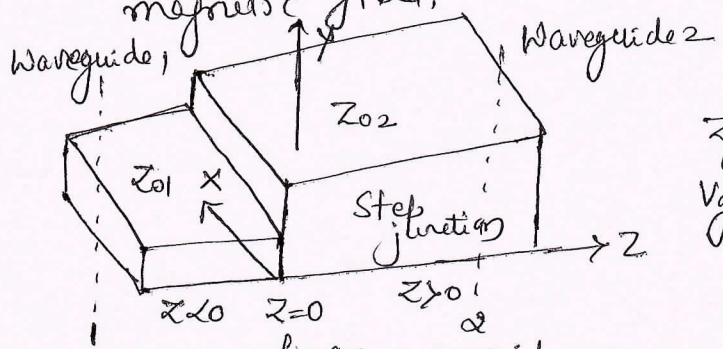 magnetic
Waveguide, Y Waveguide 2
Z02
Z01 X
Step
junction
Z
Z<0 Z=0 Z>0
2